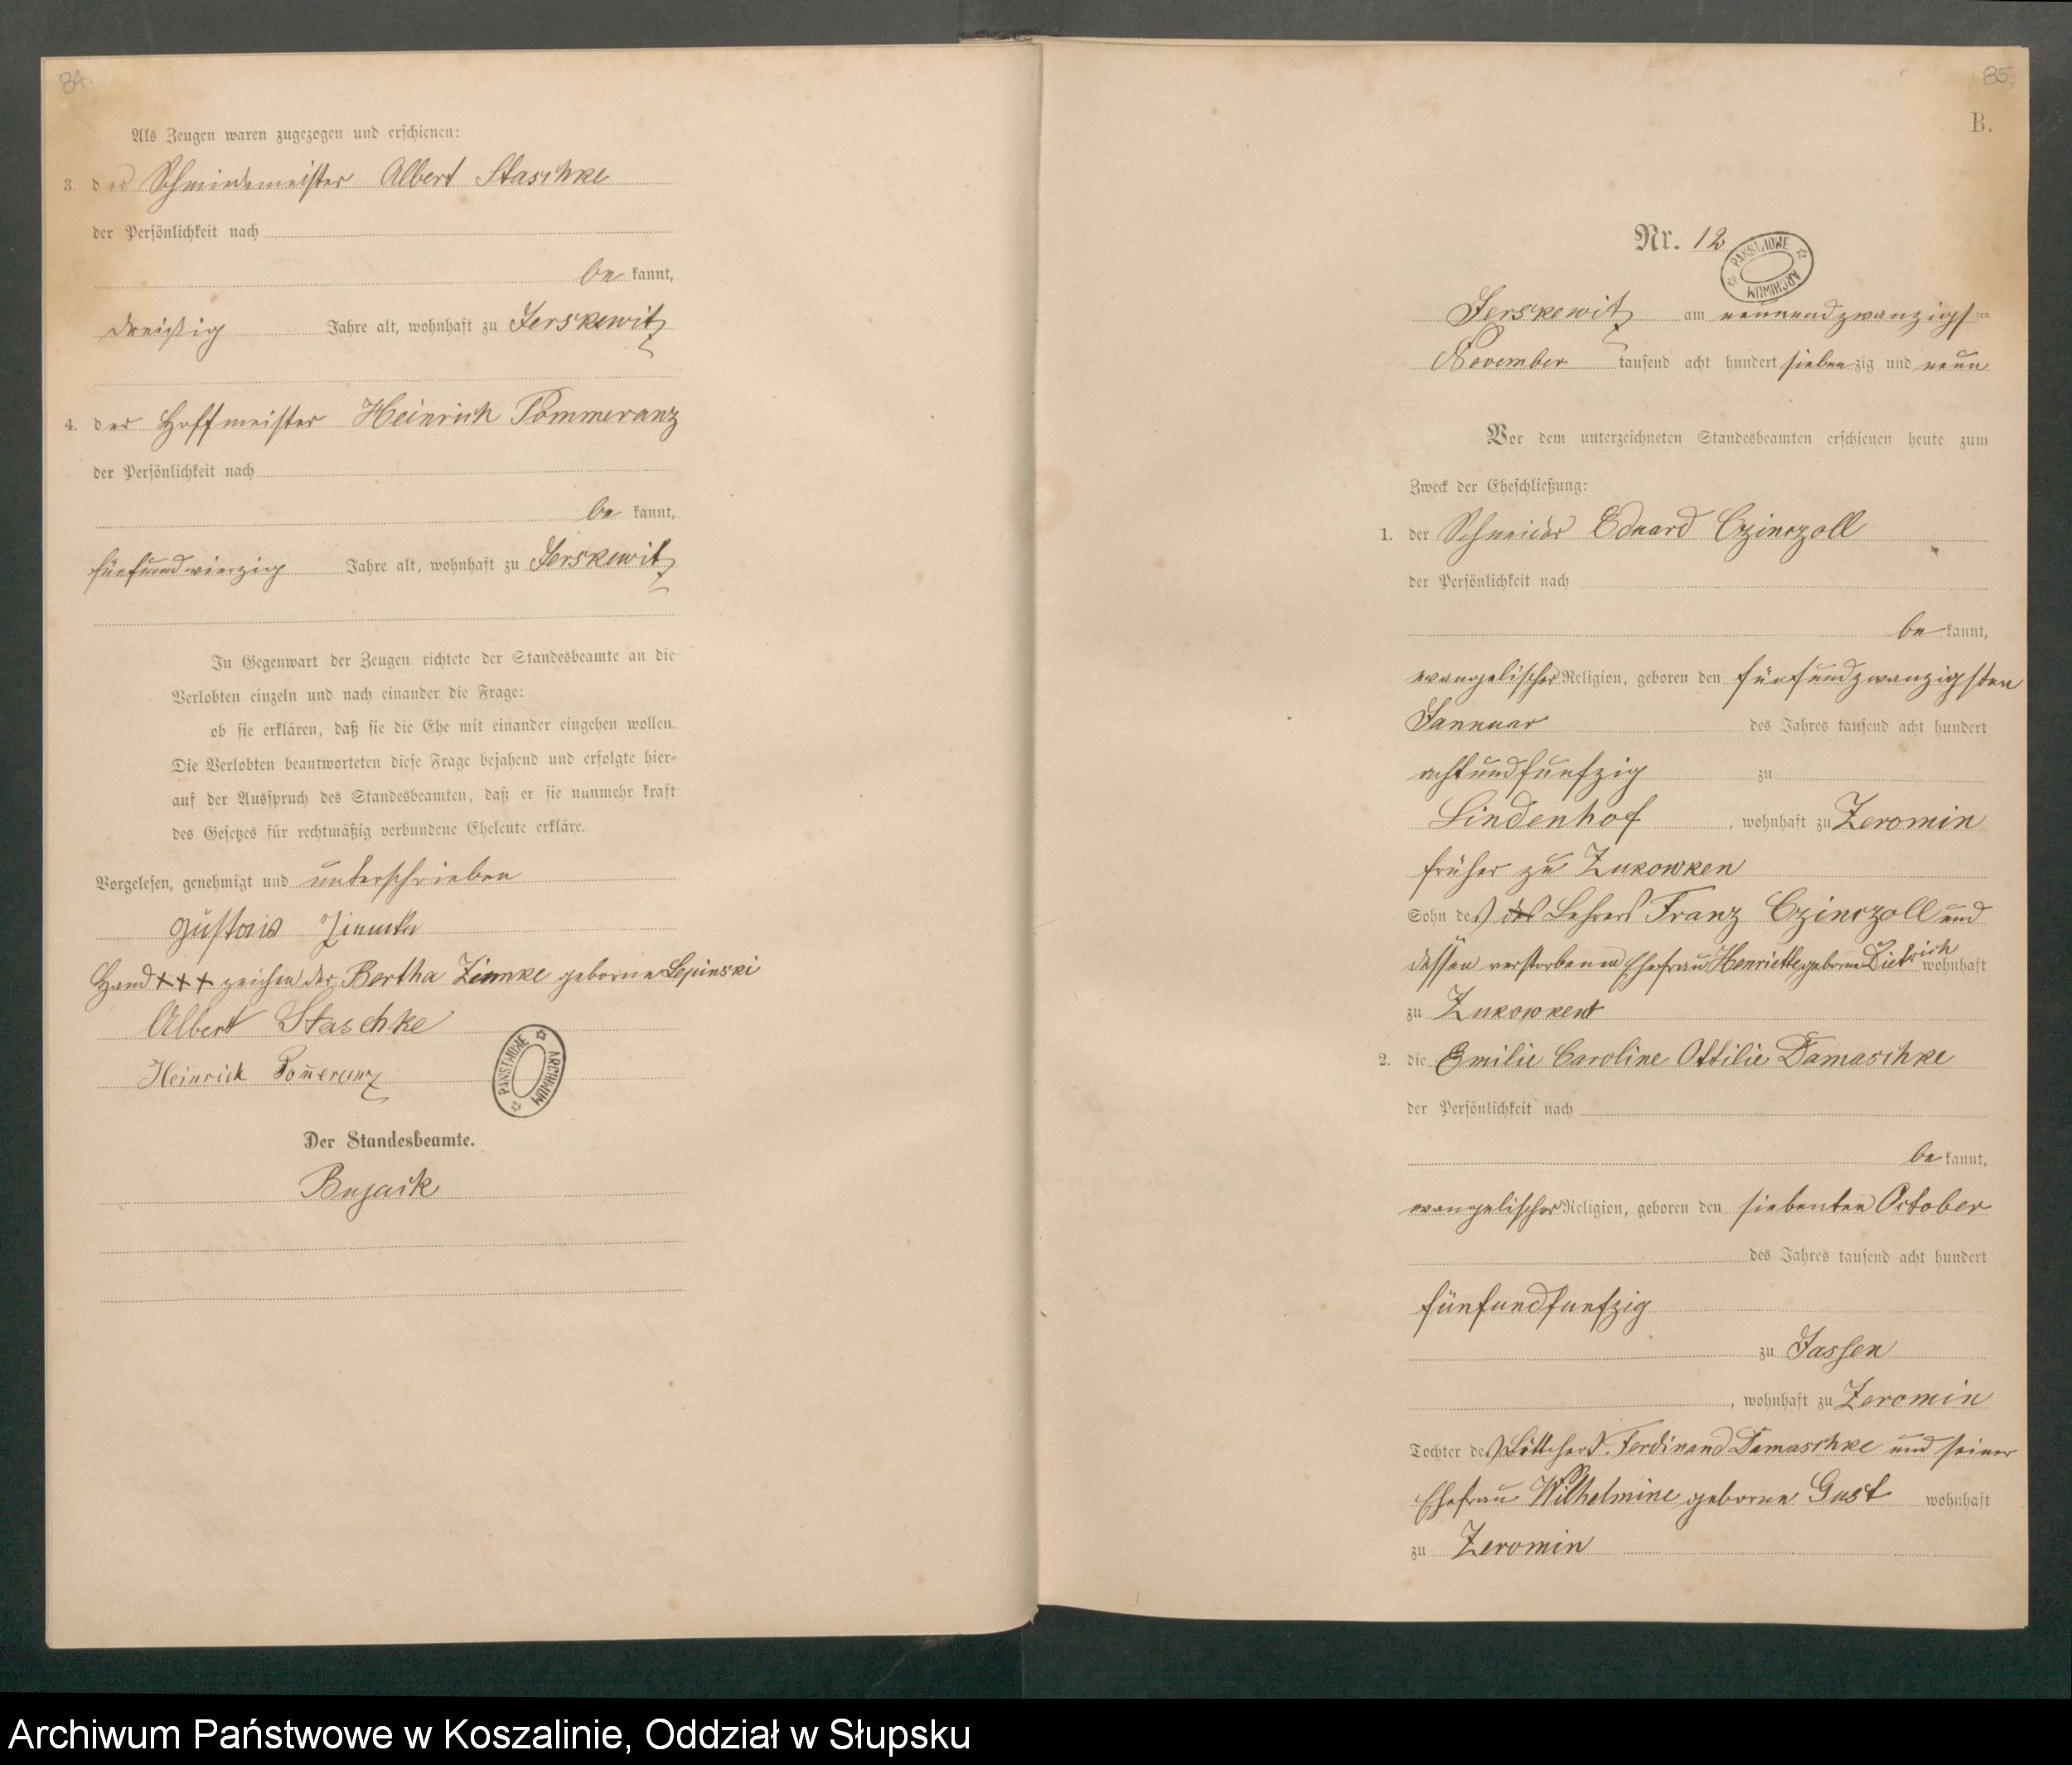 84.
Als Zeugen waren zugezogen und erschienen:
3. der Schmiedemeister Albert Staschke
der Persönlichkeit nach
be kannt,
dreißig Jahre alt, wohnhaft zu Jerskewitz
4. der Hoffmeister Heinrich Pommeranz
der Persönlichkeit nach
be kannt,
fünfundvierzig Jahre alt, wohnhaft zu Jerskewitz
In Gegenwart der Zeugen richtete der Standesbeamte an die
Verlobten einzeln und nach einander die Frage:
ob sie erklären, daß sie die Ehe mit einander eingehen wollen.
Die Verlobten beantworteten diese Frage bejahend und erfolgte hier-
auf der Ausspruch des Standesbeamten, daß er sie nunmehr kraft
des Gesetzes für rechtmäßig verbundene Eheleute erkläre.
Vorgelesen, genehmigt und unterschrieben
Gustav Zimmke
Hand +++ zeichen der Bertha Zimmke geborne Lepinski
Albert Staschke
Heinrich Pom̄eranz
PAŃSTWOWE ARCHIWUM
Der Standesbeamte.
Bujack
85.
B.
Nr. 12
PAŃSTWOWE ARCHIWUM
Jerskewitz am neunundzwanzigsten
November tausend acht hundert siebenzig und neun
Vor dem unterzeichneten Standesbeamten erschienen heute zum
Zweck der Eheschließung:
1. der Schneider Eduard Czinczoll
der Persönlichkeit nach
be kannt,
evangelischer Religion, geboren den fünfundzwanzigsten
Januar des Jahres tausend acht hundert
achtundfunfzig zu
Lindenhof, wohnhaft zu Zeromin
früher zu Zukowken
Sohn des des Lehrers Franz Czinczoll und
dessen verstorbenen Ehefrau Henriette geborne Dietrich wohnhaft
zu Zukowken
2. die Emilie Caroline Ottilie Damaschke
der Persönlichkeit nach
be kannt,
evangelischer Religion, geboren den siebenten October
des Jahres tausend acht hundert
fünfundfunfzig
zu Jassen
, wohnhaft zu Zeromin
Tochter des Böttchers Ferdinand Damaschke und seiner
Ehefrau Wilhelmine geborne Gust wohnhaft
zu Zeromin
Archiwum Państwowe w Koszalinie, Oddział w Słupsku